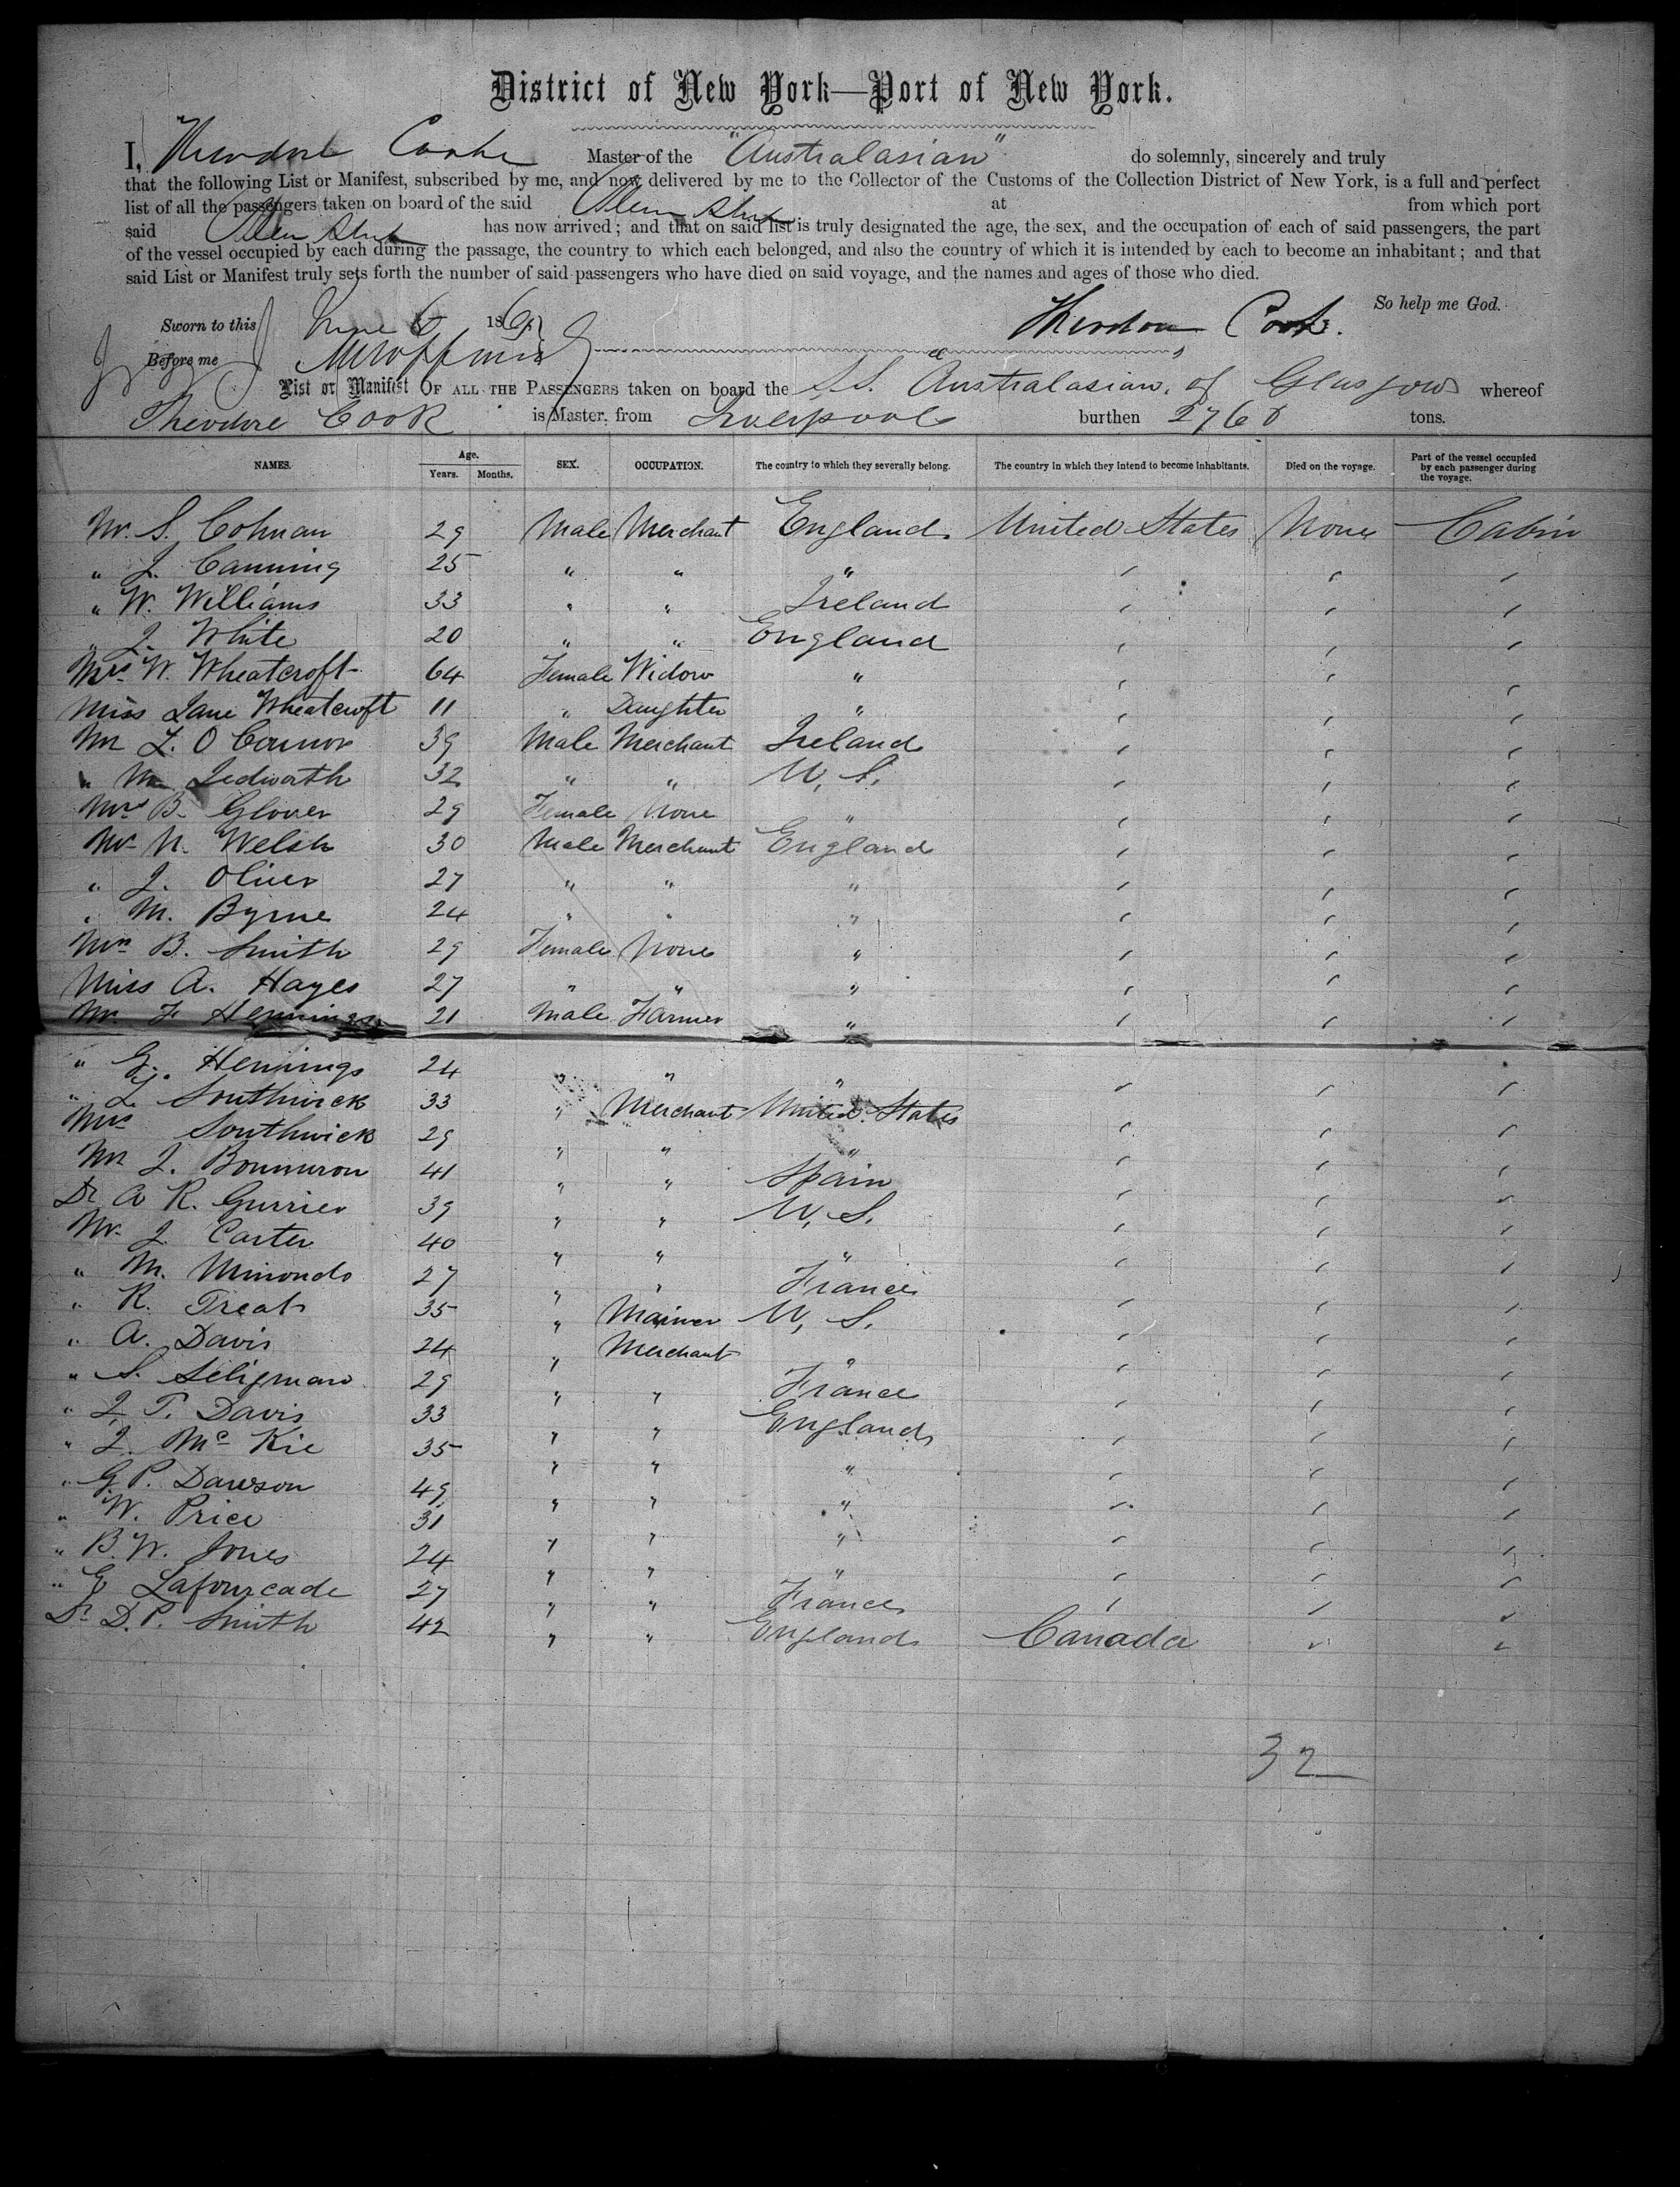 District of New York—Port of New York.
I, Theodore Cooke Master of the "Australasian" do solemnly, sincerely and truly
that the following List or Manifest, subscribed by me, and now delivered by me to the Collector of the Customs of the Collection District of New York, is a full and perfect
list of all the passengers taken on board of the said at from which port
said has now arrived; and that on said list is truly designated the age, the sex, and the occupation of each of said passengers, the part
of the vessel occupied by each during the passage, the country to which each belonged, and also the country of which it is intended by each to become an inhabitant; and that
said List or Manifest truly sets forth the number of said passengers who have died on said voyage, and the names and ages of those who died.
So help me God.
Sworn to this June 6 186 Theodore Cook.
Before me
List or Manifest OF ALL THE PASSENGERS taken on board the S.S. "Australasian" of Glasgow whereof
Theodore Cook is Master, from Liverpool burthen 2760 tons.
NAMES. Age. Years. Months. SEX. OCCUPATION. The country to which they severally belong. The country in which they intend to become inhabitants. Died on the voyage. Part of the vessel occupied by each passenger during the voyage.
Mr. S. Cohnan 29 Male Merchant England United States None Cabin
" J. Canning 25 " " " " " "
" W. Williams 33 " " Ireland " " "
" J. White 20 " " England " " "
Mrs W. Wheatcroft 64 Female Widow " " " "
Miss Jane Wheatcroft 11 " Daughter " " " "
Mr L. O Connor 39 Male Merchant Ireland " " "
" Jedworth 32 " " U. S. " " "
Mrs B. Glover 29 Female None " " " "
Mr N. Welsh 30 Male Merchant England " " "
" J. Oliver 27 " " " " " "
" M. Byrne 24 " " " " " "
Mrs B. Smith 29 Female None " " " "
Miss A. Hayes 27 " " " " " "
Mr. F Hennings 21 Male Farmer " " " "
" G. Hennings 24 " " " " " "
" L. Southwick 33 " Merchant United States " " "
Mrs Southwick 29 " " " " " "
Mr J. Bonnuron 41 " " Spain " " "
Dr A R. Gurrier 39 " " U. S. " " "
Mr. J. Carter 40 " " " " " "
" M. Minondo 27 " " France " " "
" R. Treat 35 " Mainer U. S. " " "
" A. Davis 24 " Merchant " " " "
" S. Seligman 29 " " France " " "
" J. T. Davis 33 " " England " " "
" J. Mc Kie 35 " " " " " "
" G. P. Dawson 49 " " " " " "
" W. Price 31 " " " " " "
" B. W. Jones 24 " " " " " "
" E Lafourcade 27 " " France " " "
Dr D. P. Smith 42 " " England Canada " "
32